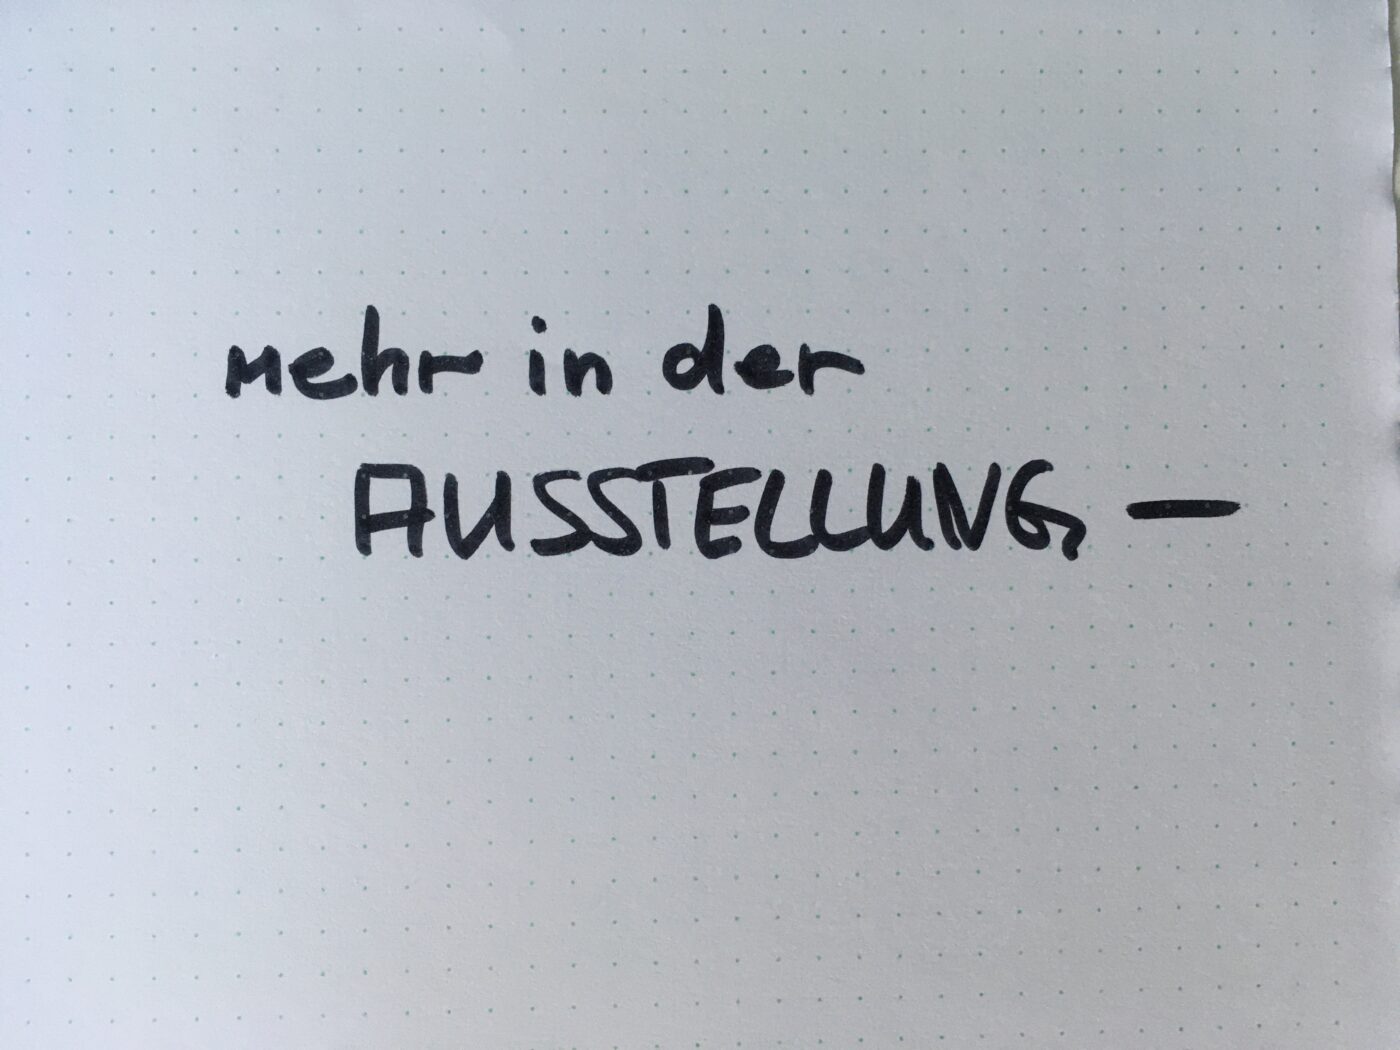 mehr in der
AUSSTELLUNG —